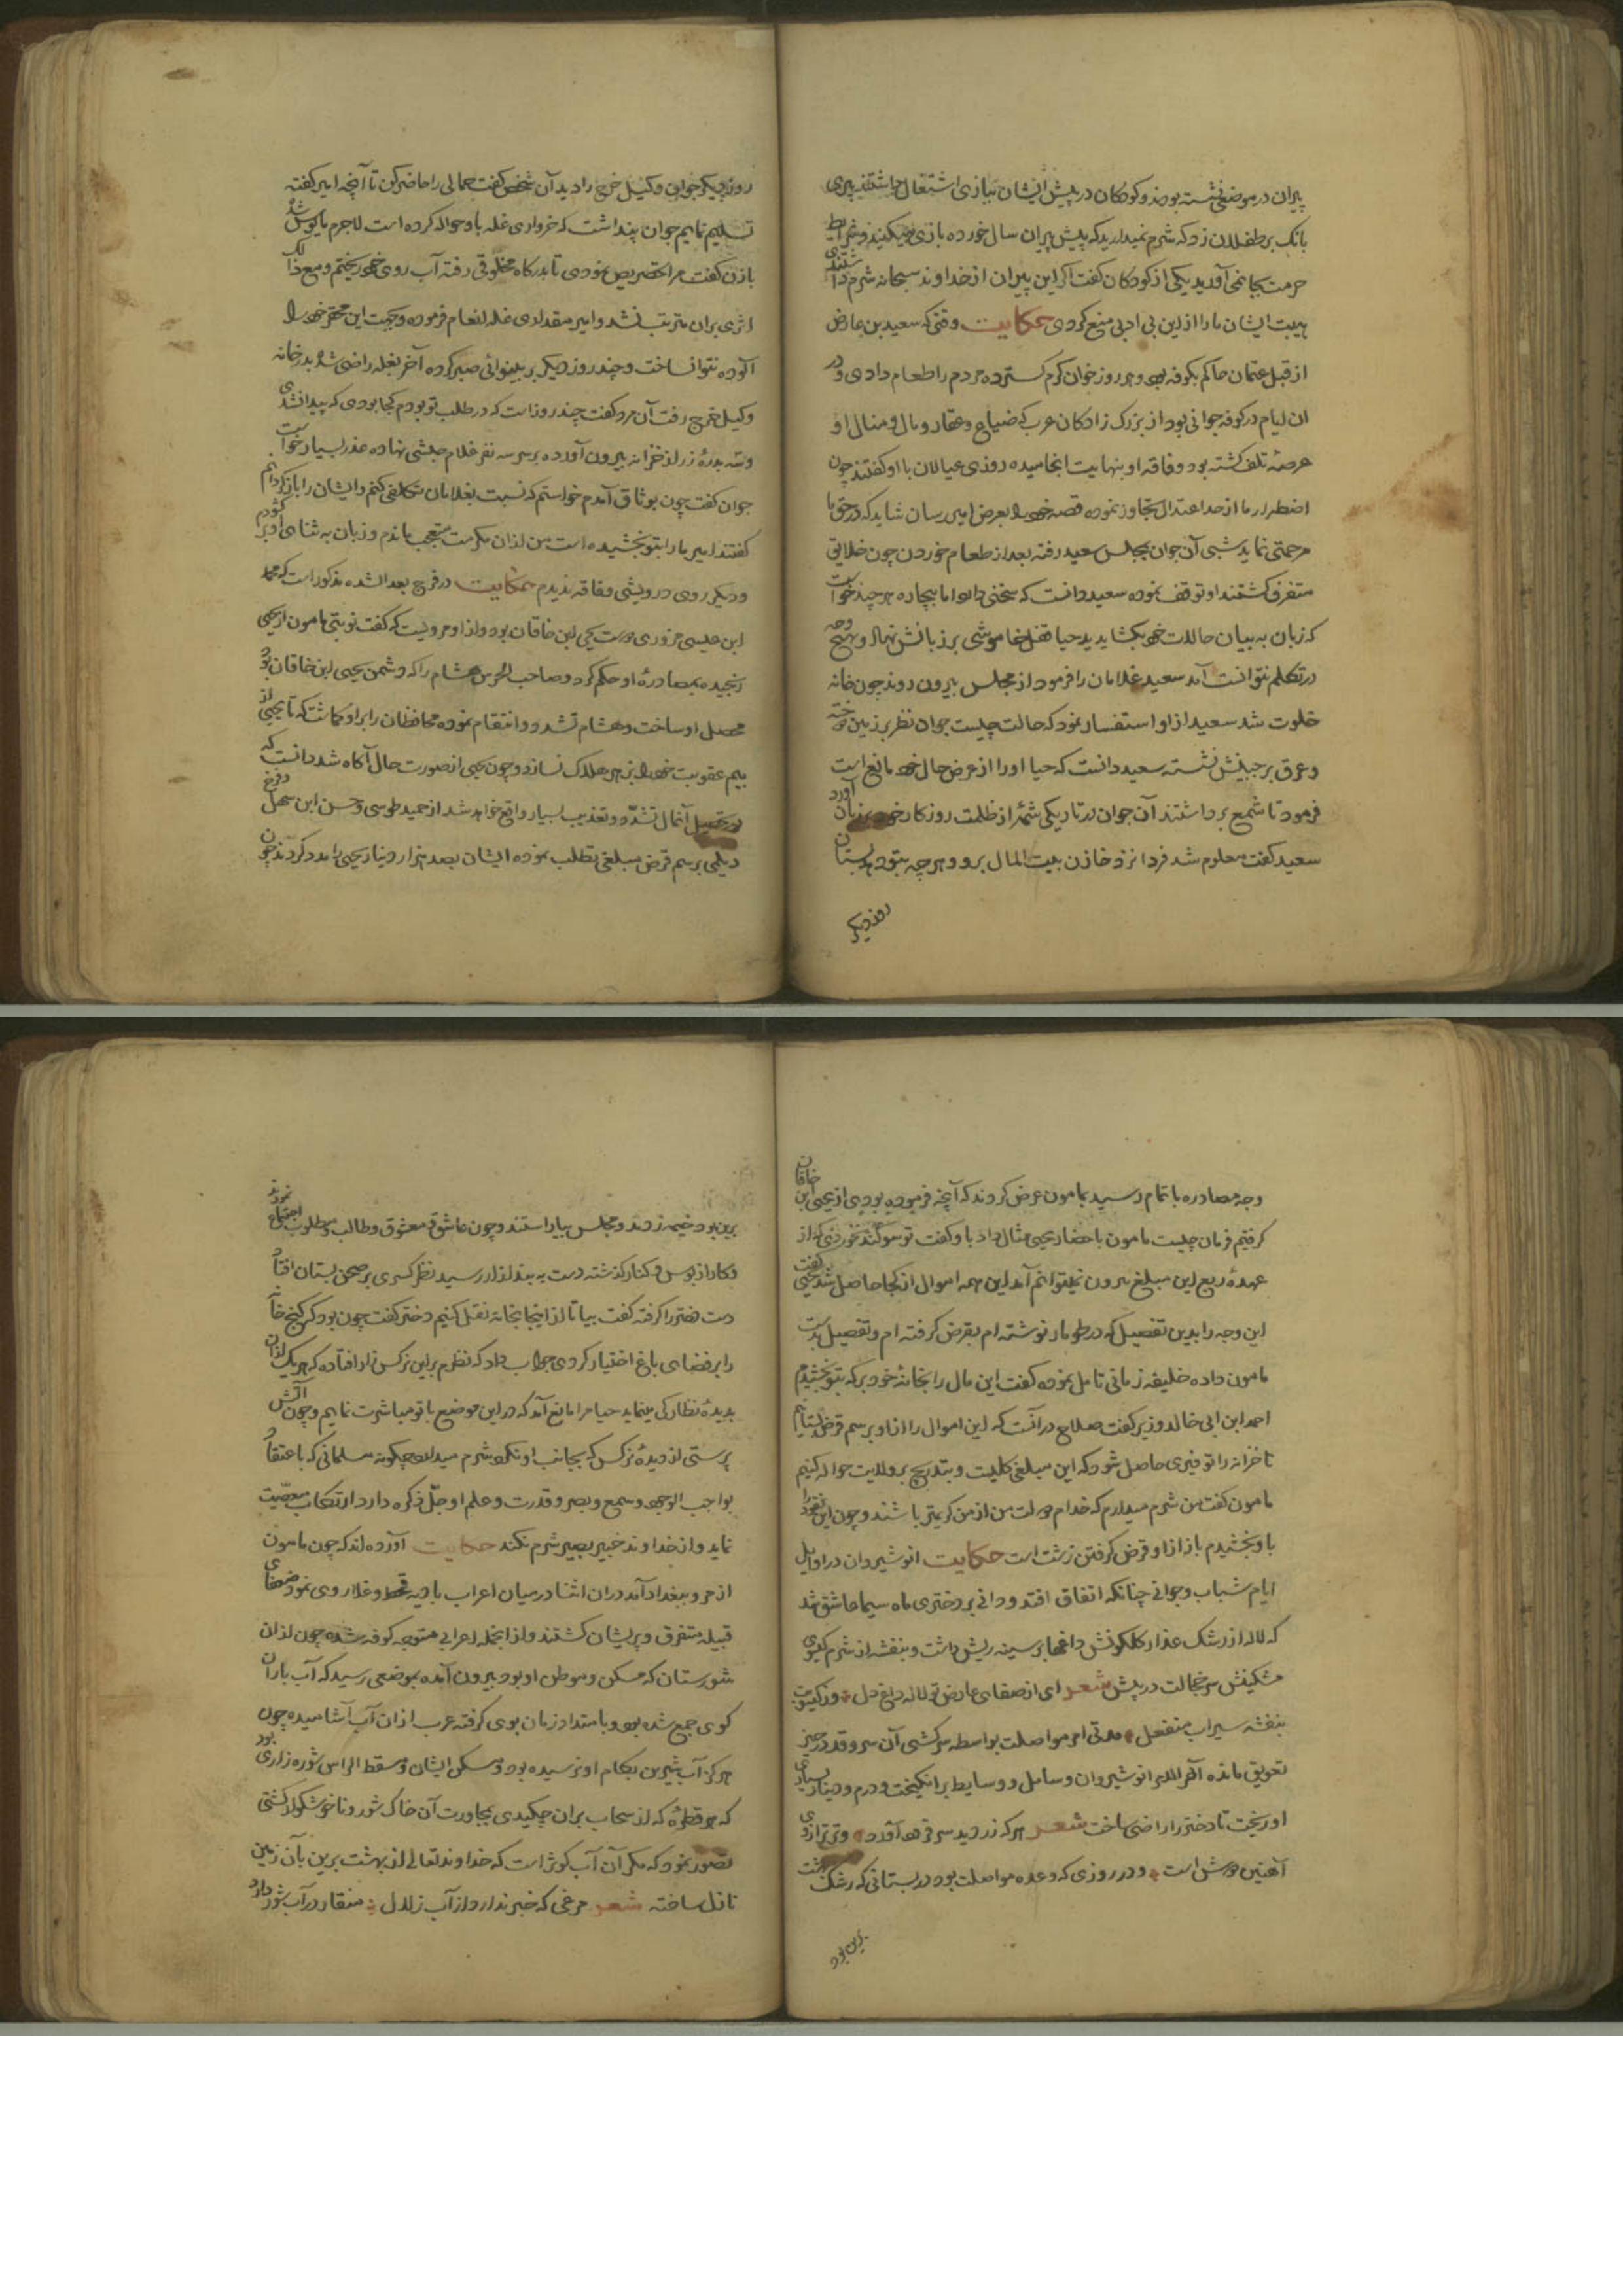 پیران در موضعی نشسته بودند و کودکان در پیش ایشان ببازی اشتغال داشتند پیری
بانک بر طفلان زد که شرم نمیدارید که پیش پیران سال خورده بازی میکنید و شرایط
حرمت بجا نمی آورید یکی از کودکان کفت اکر این پیران از خداوند سبحانه شرم داشتندی
هیبت ایشان ما را از این بی ادبی منع کردی حکایت وقتی که سعید بن عارض
از قبل عثمان حاکم بکوفه بود و هر روز خوان کرم کسترده مردم را طعام دادی و در
ان ایام در کوفه جوانی بود از بزرک زادکان عرب که ضیاع و عقار و مال و منال او
عرصهٔ تلف کشته بود و فاقه او بنهایت انجامیده روزی عیالان با او کفتند چون
اضطرار ما از حد اعتدال تجاوز نموده قصه خود را بعرض امیر رسان شاید که در حق ما
مرحمتی نماید شبی آن جوان بمجلس سعید رفته بعد از طعام خوردن چون خلایق
متفرق کشتند او توقف نموده سعید دانست که سخنی دارد اما بیچاره هر چند خواست
که زبان به بیان حالات خود بکشاید ید حیا قفل خاموشی بر زبانش نهاد و بهیچ وجه
در تکلم نتوانست آمد سعید غلامان را فرمود از مجلس بیرون روند چون خانه
خلوت شد سعید از او استفسار نمود که حالت چیست جوان نظر بر زمین دوخته
و عرق بر جبینش نشسته سعید دانست که حیا او را از عرض حال خود مانع است
فرمود تا شمع برداشتند آن جوان در تاریکی شمهٔ از ظلمت روزکار خود بر زبان آورد
سعید کفت معلوم شد فردا نزد خازن بیت المال برو و هرچه بتو دهد بستان
روز دیکر
روز دیکر جوان وکیل خرج را دید آن شخص کفت حمالی را حاضر کن تا آنچه امیر کفته
تسلیم نمایم جوان پنداشت که خرواری غله باو حواله کرده است لاجرم مایوس شد
با زن کفت مرا تحریص نمودی تا بدرکاه مخلوقی رفته آب روی خود ریختم و مع ذلک
اثری بران مترتب نشد و امیر مقداری غله انعام فرموده و جهت این محقر خود را
آلوده نتوان ساخت و چند روز دیکر بر بینوائی صبر کرده آخر بغله راضی شد بدر خانه
وکیل خرج رفت آن مرد کفت چند روز است که در طلب تو بودم کجا بودی که پیدا نشدی
و سه بدرهٔ زر از خزانه بیرون آورده بر سر سه نفر غلام حبشی نهاده عذر بسیار خواست
جوان کفت چون بوثاق آمدم خواستم که نسبت بغلامان تکلفی کنم و ایشان را باز کردانم
کفتند امیر ما را بتو بخشیده است من از ان مکرمت متعجب ماندم و زبان به ثنای او بر کشودم
و دیکر روی درویشی و فاقه ندیدم حکایت در فرج بعد الشده مذکور است که محمد
ابن عیسی مروزی دوست یحیی ابن خاقان بود و از او مرویست که کفت نوبتی مامون از یحیی
رنجیده بمصادرهٔ او حکم کرد و صاحب الحرس هشام را که دشمن یحیی ابن خاقان بود
محصل او ساخت و هشام تشدد و انتقام نموده محافظان را بر او کماشت که تا یحیی از
بیم عقوبت خود را بزهر هلاک نسازد و چون یحیی از صورت حال آکاه شد دانست که
در تحصیل آنمال تشدد و تعذیب بسیار واقع خواهد شد از حمید طوسی و حسن ابن سهل و فرخ
دیلمی برسم قرض مبلغی تطلب نموده ایشان بصد هزار دینار یحیی را مدد کردند چون
وجه مصادره باتمام رسید بمامون عرض کردند که آنچه فرموده بودی از یحیی ابن خاقان
کرفتیم فرمان چیست مامون باحضار یحیی مثال داد باو کفت تو سوکند نخوردی که از
عهدهٔ ربع این مبلغ بیرون نمیتوانم آمد این همه اموال از کجا حاصل شد یحیی کفت
این وجه را بدین تفصیل که در طومار نوشته ام بقرض کرفته ام و تفصیل بدست
مامون داده خلیفه زمانی تامل نموده کفت این مال را بخانهٔ خود بر که بتو بخشیدم
احمد ابن ابی خالد وزیر کفت صلاح در آنست که این اموال را از او برسم قرض بستانیم
تا خزانه را توفیری حاصل شود که این مبلغی کلیست و بتدریج بر ولایت حواله کنیم
مامون کفت من شرم میدارم که خدام دولت من از من کریمتر باشند و چون این نقود را
باو بخشیدم باز از او قرض کرفتن زشت است حکایت انوشیروان در اوایل
ایام شباب و جوانی چنانکه اتفاق افتد و دانی بر دختری ماه سیما عاشق شد
که لاله از رشک عذار کلکونش داغها بر سینه ریش داشت و بنفشه از شرم کیسوی
مشکینش سر خجالت در پیش شعر ای از صفای عارض تو لاله داغ دل وز کیسویت
بنفشه سیراب منفعل مدتی امر مواصلت بواسطه سرکشی آن سرو قد در حیز
تعویق مانده آخر الامر انوشیروان وسایل و وسایط برانکیخت و درم و دینار بسیاری
او ریخت تا دختر را راضی ساخت شعر هر که زر دید سر فرود آورد ور ترازوی
آهنین دوش است و در روزی که وعده مواصلت بود در بستانی که رشک بهشت
برین بود
برین بود خیمه زدند و مجلس بیاراستند و چون عاشق و معشوق و طالب و مطلوب اجتماع نمودند
و کار از بوس و کنار کذشته دست به بند ازار رسید نظر کسری بر صحن بستان افتاد
دست دختر را کرفته کفت بیا تا از اینجا بخانه نقل کنیم دختر کفت چون بود که کنج خانه
را بر فضای باغ اختیار کردی جواب داد که نظرم بر این نرکس زار افتاده که هر یک از ان
بدیدهٔ نظارکی مینماید حیا مرا مانع آمد که در این موضع با تو مباشرت نمایم و چون آتش
پرستی از دیدهٔ نرکس که بجانب او نکرد شرم میدارد چکونه مسلمانی که باعتقاد
بواجب الوجود و سمع و بصر و قدرت و علم او جل ذکره دارد ارتکاب معصیت
نماید و از خداوند خبیر بصیر شرم نکند حکایت آورده اند که چون مامون
از مرو ببغداد آمد دران اثنا در میان اعراب بادیه قحط و غلا روی نمود
قبیله متفرق و پریشان کشتند و از انجمله اعرابی متوجه کوفه شده چون از ان
شورستان که مسکن و موطن او بود بیرون آمده بموضعی رسید که آب باران
کوی جمع شده بود و بامتداد زمان بوی کرفته عرب از ان آب آشامیده چون
هرکز آب شیرین بکام او نرسیده بود و مسکن ایشان و مسقط الراس شوره زاری بود
که هر قطرهٔ که از سحاب بران چکیدی بمجاورت آن خاک شور و ناخوشکوار کشتی
تصور نمود که مکر آن آب کوثر است که خداوند تعالی از بهشت برین بآن زمین
نازل ساخته شعر مرغی که خبر ندارد از آب زلال منقار در آب شور دارد